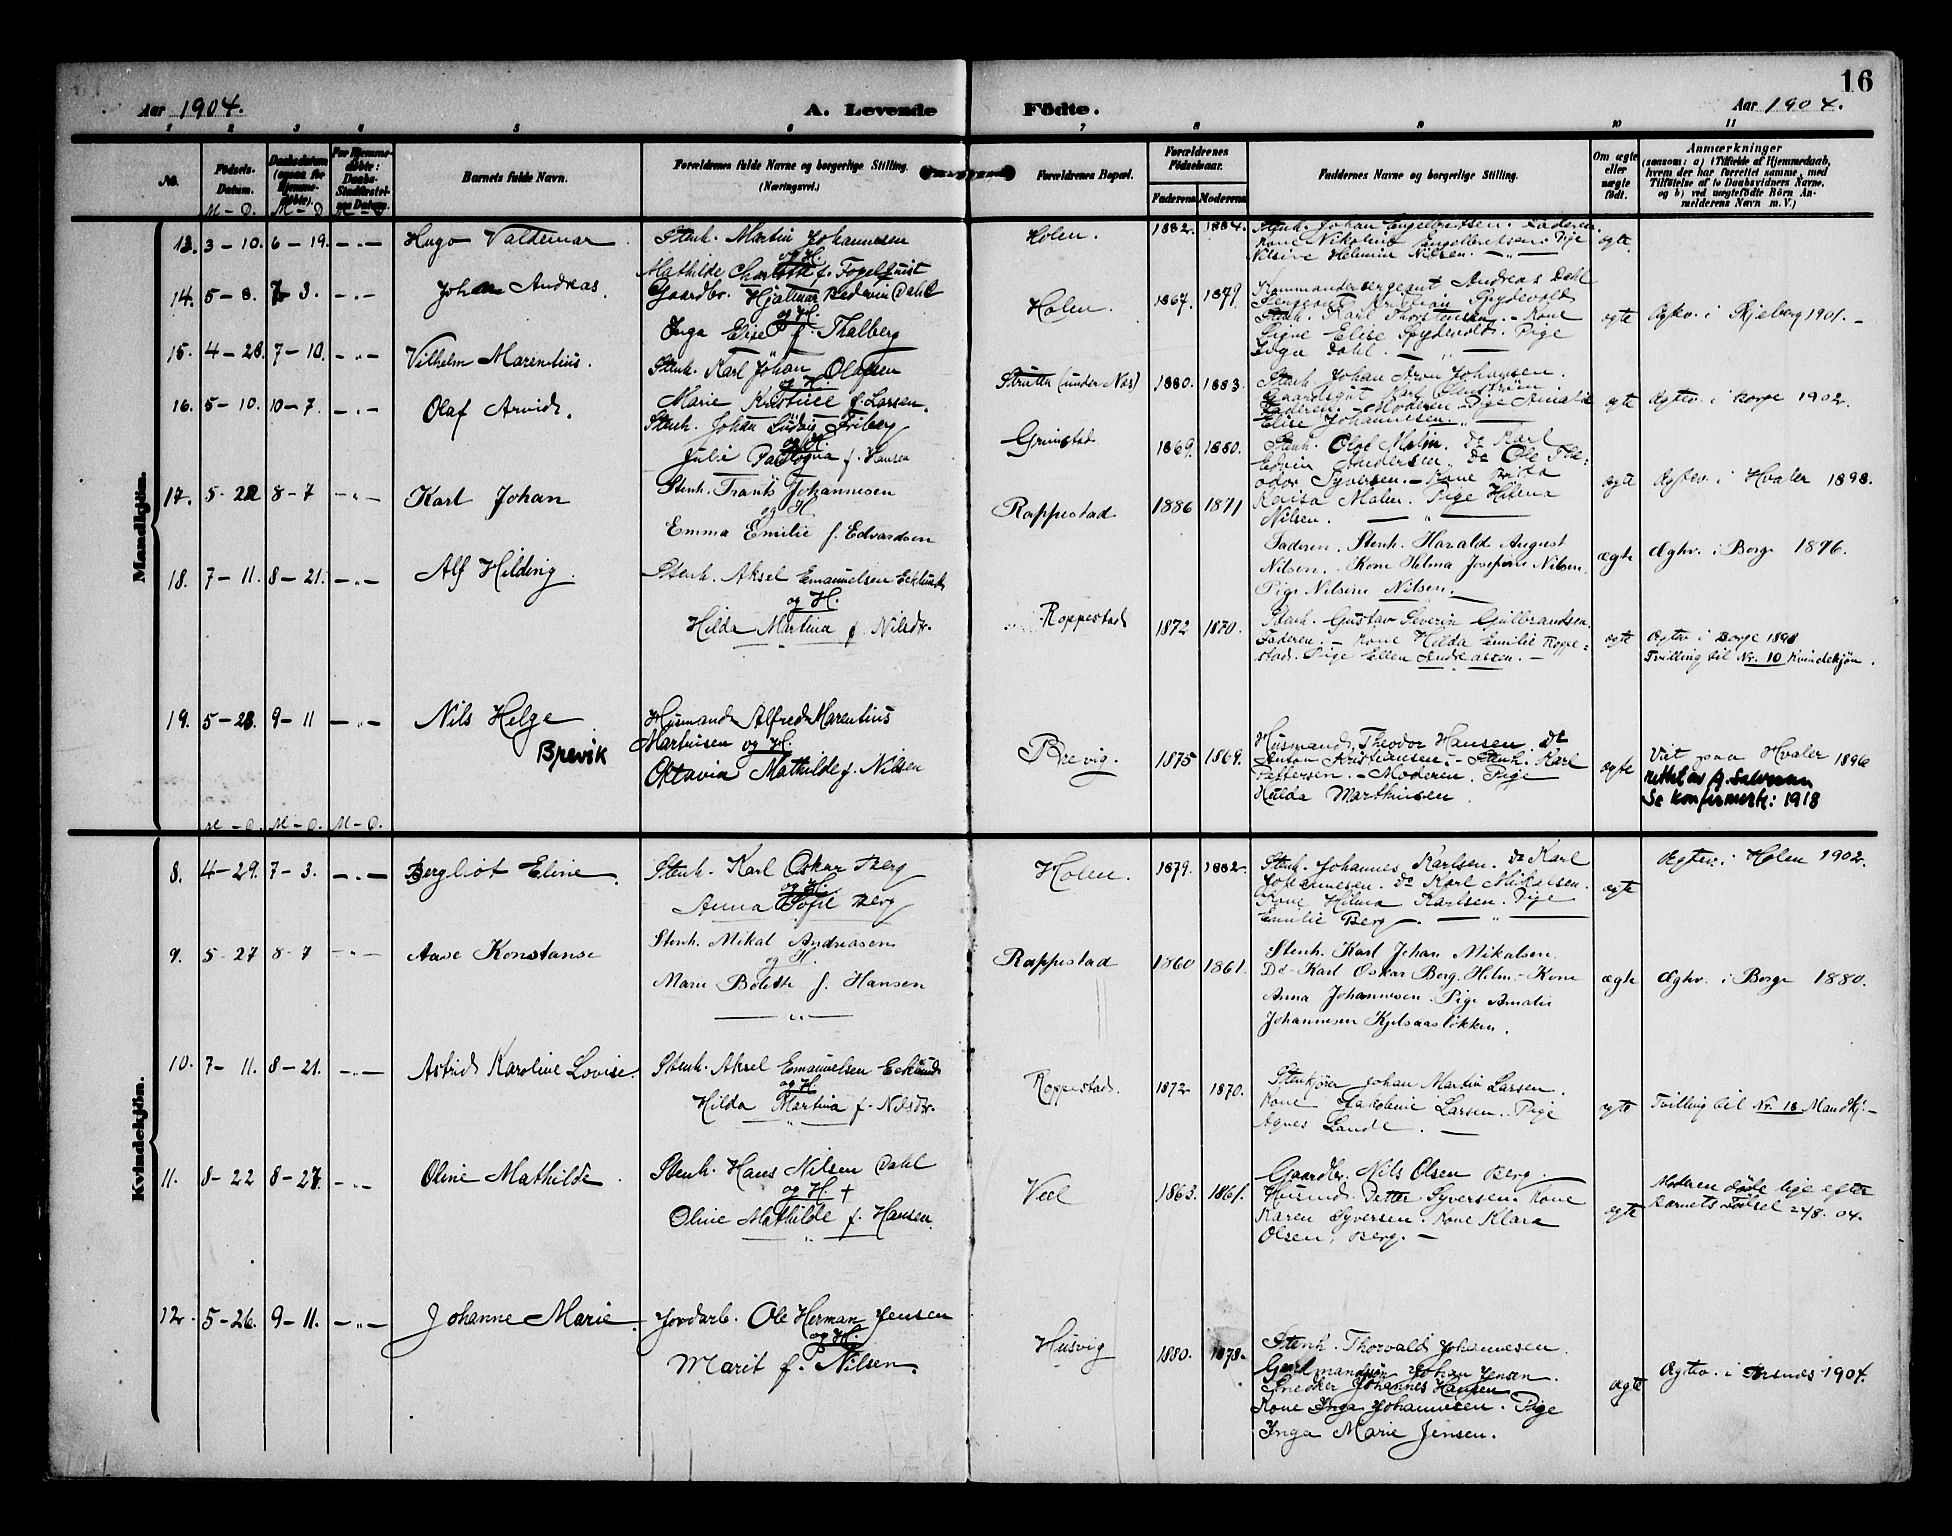 16
Aar 1904.
A. Levende
Födte.
Aar 1904.
1 2 3 4 5 6 7 8 9 10 11
No.
Födsels-Datum.
Daabsdatum (ogsaa for Hjemme-döbte).
For Hjemme-döbte: Daabs-Stadfæstel-sens Datum.
Barnets fulde Navn.
Forældrenes fulde Navne og borgerlige Stilling.
(Næringsvei.)
Forældrenes Bopæl.
Forældrenes Födselsaar.
Faderens Moderens
Faddernes Navne og borgerlige Stilling.
Om ægte eller uægte födt.
Anmærkninger
(saasom: a) i Tilfælde af Hjemmedaab,
hvem der har forrettet samme, med
Tilföielse af to Daabsvidners Navne,
og b) ved uægtefödte Börn An-
melderens Navn m. V.)
M – D. M – D M – D
Mandkjön.
13. 3 – 10. 6 – 19. – „ – Hugo Valdemar
Stenh. Martin Johannesen
og H.
Mathilde Charlotte f. Fogelquist
Holen. 1882. 1884.
Stenh. Johan Engelbretsen. Faderen.
Kone Nikoline Engelbretsen. Pige
Nilsine Helmine Nilsen. – „ –
ægte
14. 5 – 8. 7 3. – „ – Johan Andreas.
Gaardbr. Hjalmar Dahl
og H.
Inga Elise f. Thalberg
Holen. 1867. 1879.
Kommandersergeant Andreas Dahl
Sergeant Kristian Spydevold
Stenh. Karl Thorstensen. – Kone
Signe Elise Spydevold. Pige
Inga Dahl. – „ –
ægte Ægtev. i Skjeberg 1901. –
15. 4 – 28. 7 – 10. – „ – Vilhelm Marentius.
Stenh. Karl Johan Olafsen
og H.
Marie Kristine f. Larsen.
(under Næs) 1880. 1883.
Stenh. Johan Aron Johansen.
Gaardsgut Karl
Faderen. – Moderen. Pige Amalie
Elise Johannesen. „
ægte Ægtev. i Borge 1902.
16. 5 – 10. 10 – 7. – „ – Olaf Arvid.
Stenh. Johan Ludvig Friberg
og H.
Julie f. Hansen
Grimstad 1869. 1880.
Stenh. Olof Malm. do Karl
Edvin Andersen. do Ole The-
odor Syversen. – Kone
Malm. Pige Helena
Nilsen. – „ –
ægte Ægtev. i Hvaler 1898.
17. 5 – 22 8 – 7 – „ – Karl Johan
Stenh. Frants Johannesen
og H
Emma Emilie f. Edvardsen
Roppestad 1886 1871
Faderen. Stenh. Harald August
Nilsen. Kone Helma Josefine Nilsen.
Pige Nilsine Nilsen.
ægte Ægtev. i Borge 1896.
18. 7 – 11. 8 – 21. – „ – Alf Hilding.
Stenh. Aksel Emanuelsen Ecklund
og H.
Hilda Martina f. Nilsdr.
Roppestad 1872 1870.
Stenh. Gustav Severin Gulbrandsen.
Faderen. – Kone Hilda Emilie Roppe-
stad. Pige Ellen Andreassen. –
ægte Ægtev. i Borge 1898
Tvilling til Nr. 10 Kvindekjön.
19. 5 – 28. 9 – 11 – „ – Nils Helge
Brevik
Husmand Alfred Marentius
Martinsen og H.
Oktavia Mathilde f. Nilsen
Brevig. 1875 1869.
Husmand Theodor Hansen. do
Anton Kristiansen. – Stenh. Karl
Pettersen. – Moderen. Pige
Hulda Marthinsen.
ægte Viet paa Hvaler 1896
Se konfirmertp: 1918
M – D. M – D. M – D.
Kvindekjön.
8. 4 – 29. 7 – 3. – „ – Bergliot Eline.
Stenh. Karl Oskar Berg
og H.
Anna Sofie Berg
Holen. 1879. 1882.
Stenh. Johannes Karlsen. do Karl
Johannesen. do Karl Mikalsen.
Kone Helma Karlsen. Pige
Emilie Berg – „ –
ægte Ægtev. i Holen 1902.
9. 5 – 27 8 – 7 – „ – Aase Konstanse
Stenh. Mikal Andreasen
og H.
Marie Bolette f. Hansen
– „ –
Roppestad 1860 1861.
Stenh. Karl Johan Mikalsen.
Do – Karl Oskar Berg, Holm. – Kone
Anna Johannesen. Pige Amalie
Johannesen Kjelsaasløkken.
ægte Ægtev. i Borge 1880.
10. 7 – 11. 8 – 21. – „ – Astrid Karoline Lovise.
Stenh. Aksel Emanuelsen Ecklund
og H
Hilda Martina f. Nilsdr.
„
Roppestad. 1872 1870.
Stenkjører Johan Martin Larsen
Kone Jakobine Larsen. Pige
Agnes Lande. –
ægte Tvilling til Nr. 18 Mandkj. –
11. 8 – 22 8 – 27. – „ – Oline Mathilde.
Stenh. Hans Nilsen Dahl
og H +
Oline Mathilde f. Hansen.
„
Veel 1863. 1861.
Gaardbr. Nils Olsen Berg.
Husmd. Petter Syversen. Kone
Karen Syversen. Kone Klara
Olsen, Berg. –
ægte Moderen døde lige efter
Barnets Fødsel 22/8. 04.
12. 5 – 26. 9 – 11. – „ – Johanne Marie.
Jordarb. Ole Herman Jensen
og H.
Marit f. Nilsen.
Husvig 1880. 1878.
Stenh. Thorvald Johannesen.
Gaardmandssøn Johan Jensen.
Snedker Johannes Hansen
Kone Inga Johannesen. Pige
Inga Marie Jensen.
ægte Ægtev. i 1904.